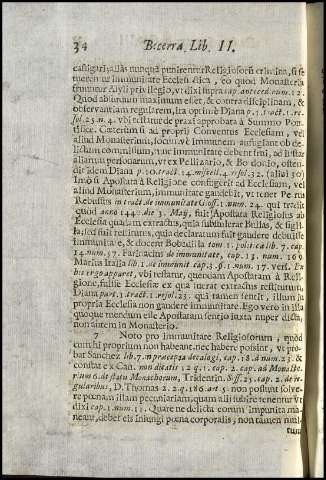 34 Becerra, Lib. II.
castigari; aliàs nunquā punirentur Religiosorū crimina, si se
tuerentur immunitate Ecclesiastica, eo quod Monasteria
fruuntur Asyli privilegio, vt dixi supra cap. antecéd. num. 12.
Quod absurdum maximum esset, & contra disciplinam, &
observantiam regularem, ita opinatur Diana p. 1. tract. 1. re-
sol. 23. n. 4. vbi testatur de praxi approbata à Summo Pon-
tifice. Cæterùm si ad proprij Conventus Ecclesiam, vel
aliud Monasterium, locumve immunem aufugiant ob de-
lictum commissum, tunc immunitate debent frui, ad instar
aliarum personarum, vt ex Pellizario, & Bordonio, osten-
dit idem Diana p. 10. tract. 14. miscell. 4. resol. 32. (aliàs 30)
Imò si Apostata à Religione confugerit ad Ecclesiam, vel
aliud Monasterium, immunitate gaudebit, vt tenet Petrus
Rebuffus in tract. de immunitate Gloss. num. 24. qui tradit
quod anno 144 die 3. Maij, fuit Apostata Religiosus ab
Ecclesia quadam extractus, quia sustulerat Bullas, & sigil-
la, sed fuit restitutus, quia declaratum fuit gaudere debuisse
immunitate, & docent Bobedilla tom. 1. polit. lib. 7. cap.
14. num. 57. Farinacius de immunitate, cap. 13. num. 169
Marius Italia lib. 1. de immunit. cap. 5. §. 1. num. 17. vers. Ex
his ergo apparet, vbi testatur, quendam Apostatam à Reli-
gione, fuisse Ecclesiæ ex qua fuerat extractus restitutum.
Diana part. 1. tract. 1. resol. 23. qui tamen tenet, illum in
propria Ecclesia non gaudere immunitate. Ego vero in illa
quoque tuendum esse Apostatam sentio juxta nuper dicta,
non autem in Monasterio.
7 Noto pro immunitate Religiosorum, quod
cum hi proprium non habeant, nec habere possint, vt pro-
bat Sanchez lib. 7. in præcepta decalogi, cap. 18. à num. 23. &
constat ex Can. non dicatis 12. q. 1. cap. 2. cap. ad Monaste-
rium 6. de statu Monachorum, Tridentin. Sess. 25. cap. 2. de re-
gularibus, D. Thomas 2. 2. q. 186. art. 3. non possunt solve-
re pœnam illam pecuniariam, quam alii subire tenentur vt
dixi cap. 1. num. 13. Quare ne delicta eorum impunita ma-
neant, debet eis iniungi pœna corporalis; non tamen multum